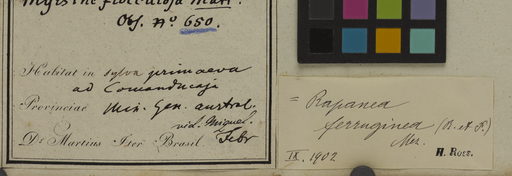 Myrsine floculosa Mart.
Obs. No. 650.
Habitat in sylva primaeva
ad Comanducaja
Provinciae Min. Gen. austral.
vid. Miquel.
Dr. Martius Iter Brasil. Febr
= Rapanea
ferruginea (R. et P.)
Mez.
IX. 1902
H. Ross.